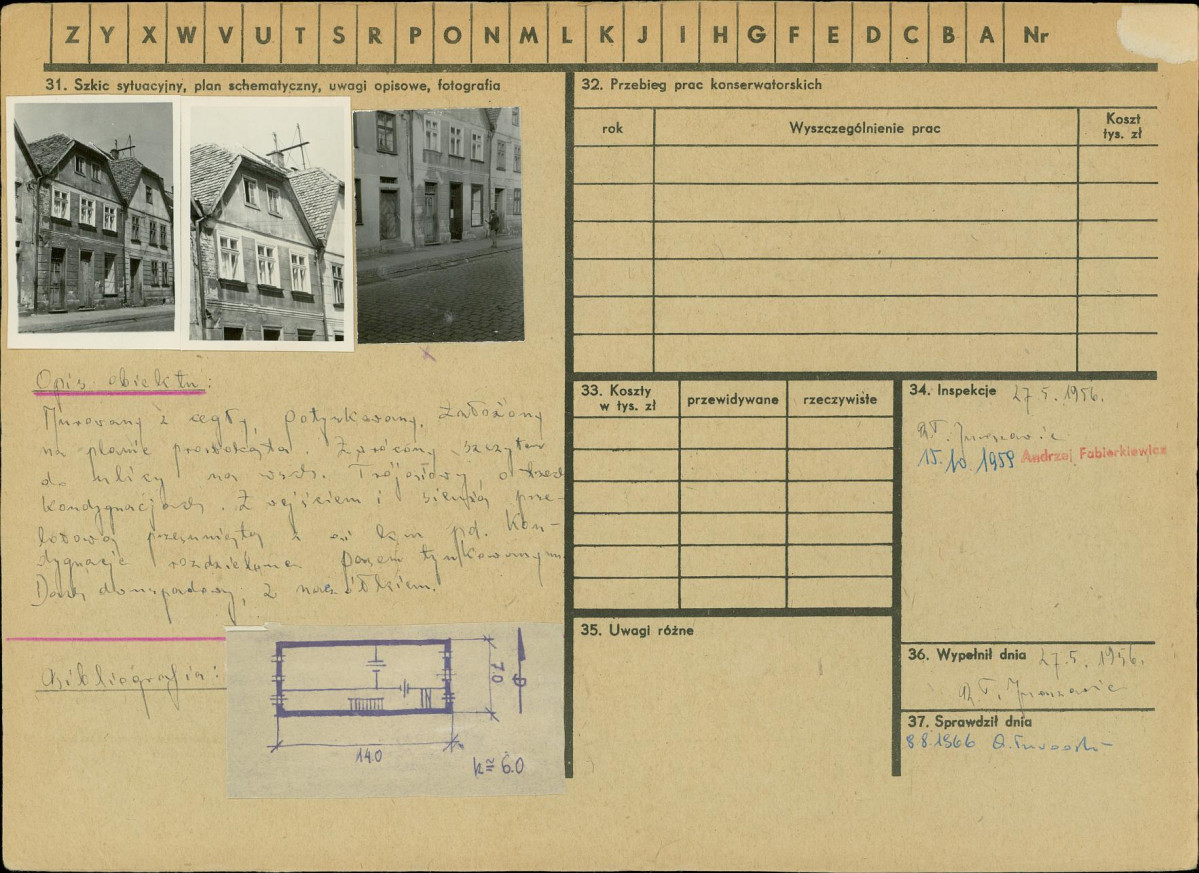 Z Y X W V U T S R P O N M L K J I H G F E D C B A Nr
31. Szkic sytuacyjny, plan schematyczny, uwagi opisowe, fotografia
Opis obiektu:
Murowany z cegły, potynkowany. Założony
na planie prostokąta. Zwrócony szczytem
do ulicy na wsch. Trójosiowy, o trzech
kondygnacjach. Z wejściem i sienią prze-
lotową przesuniętą z osi ku pd. Kon-
dygnacje rozdzielone pasem tynkowanym.
Dach dwuspadowy, z naczółkiem.
Bibliografia:
7.0
14.0
k≅ 6.0
32. Przebieg prac konserwatorskich
rok
Wyszczególnienie prac
Koszt
tys. zł
33. Koszty
w tys. zł
przewidywane
rzeczywiste
34. Inspekcje
27.5.1956.
15.10.1959 Andrzej Fabierkiewicz
35. Uwagi różne
36. Wypełnił dnia 27.5.1956.
37. Sprawdził dnia
8.8.1966